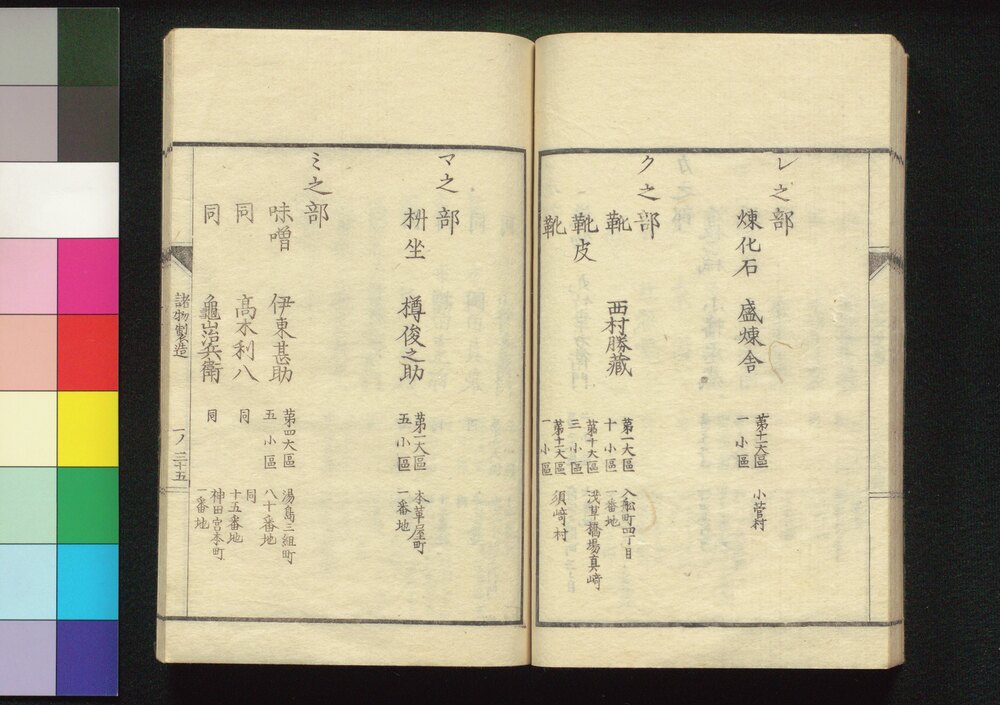 レ之部
煉化石 盛煉舎 第十一大區 一小區 小菅村
ク之部
靴 西村勝藏 第一大區 十小區 入舩町四丁目 一番地
靴皮 第十大區 三小區 浅草橋場真﨑
靴 第十一大區 一小區 須﨑村
マ之部
枡坐 樽俊之助 第一大區 五小區 本草屋町 一番地
ミ之部
味噌 伊東甚助 第四大區 五小區 湯島三組町 八十番地
同 高木利八 同 同 十五番地
同 龜山治兵衛 同 神田宮本町 一番地
諸物製造 一ノ三十五